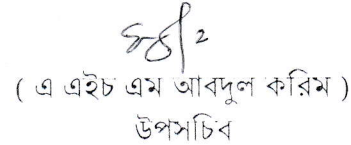 ( এ এইচ এম আবদুল করিম )
উপসচিব